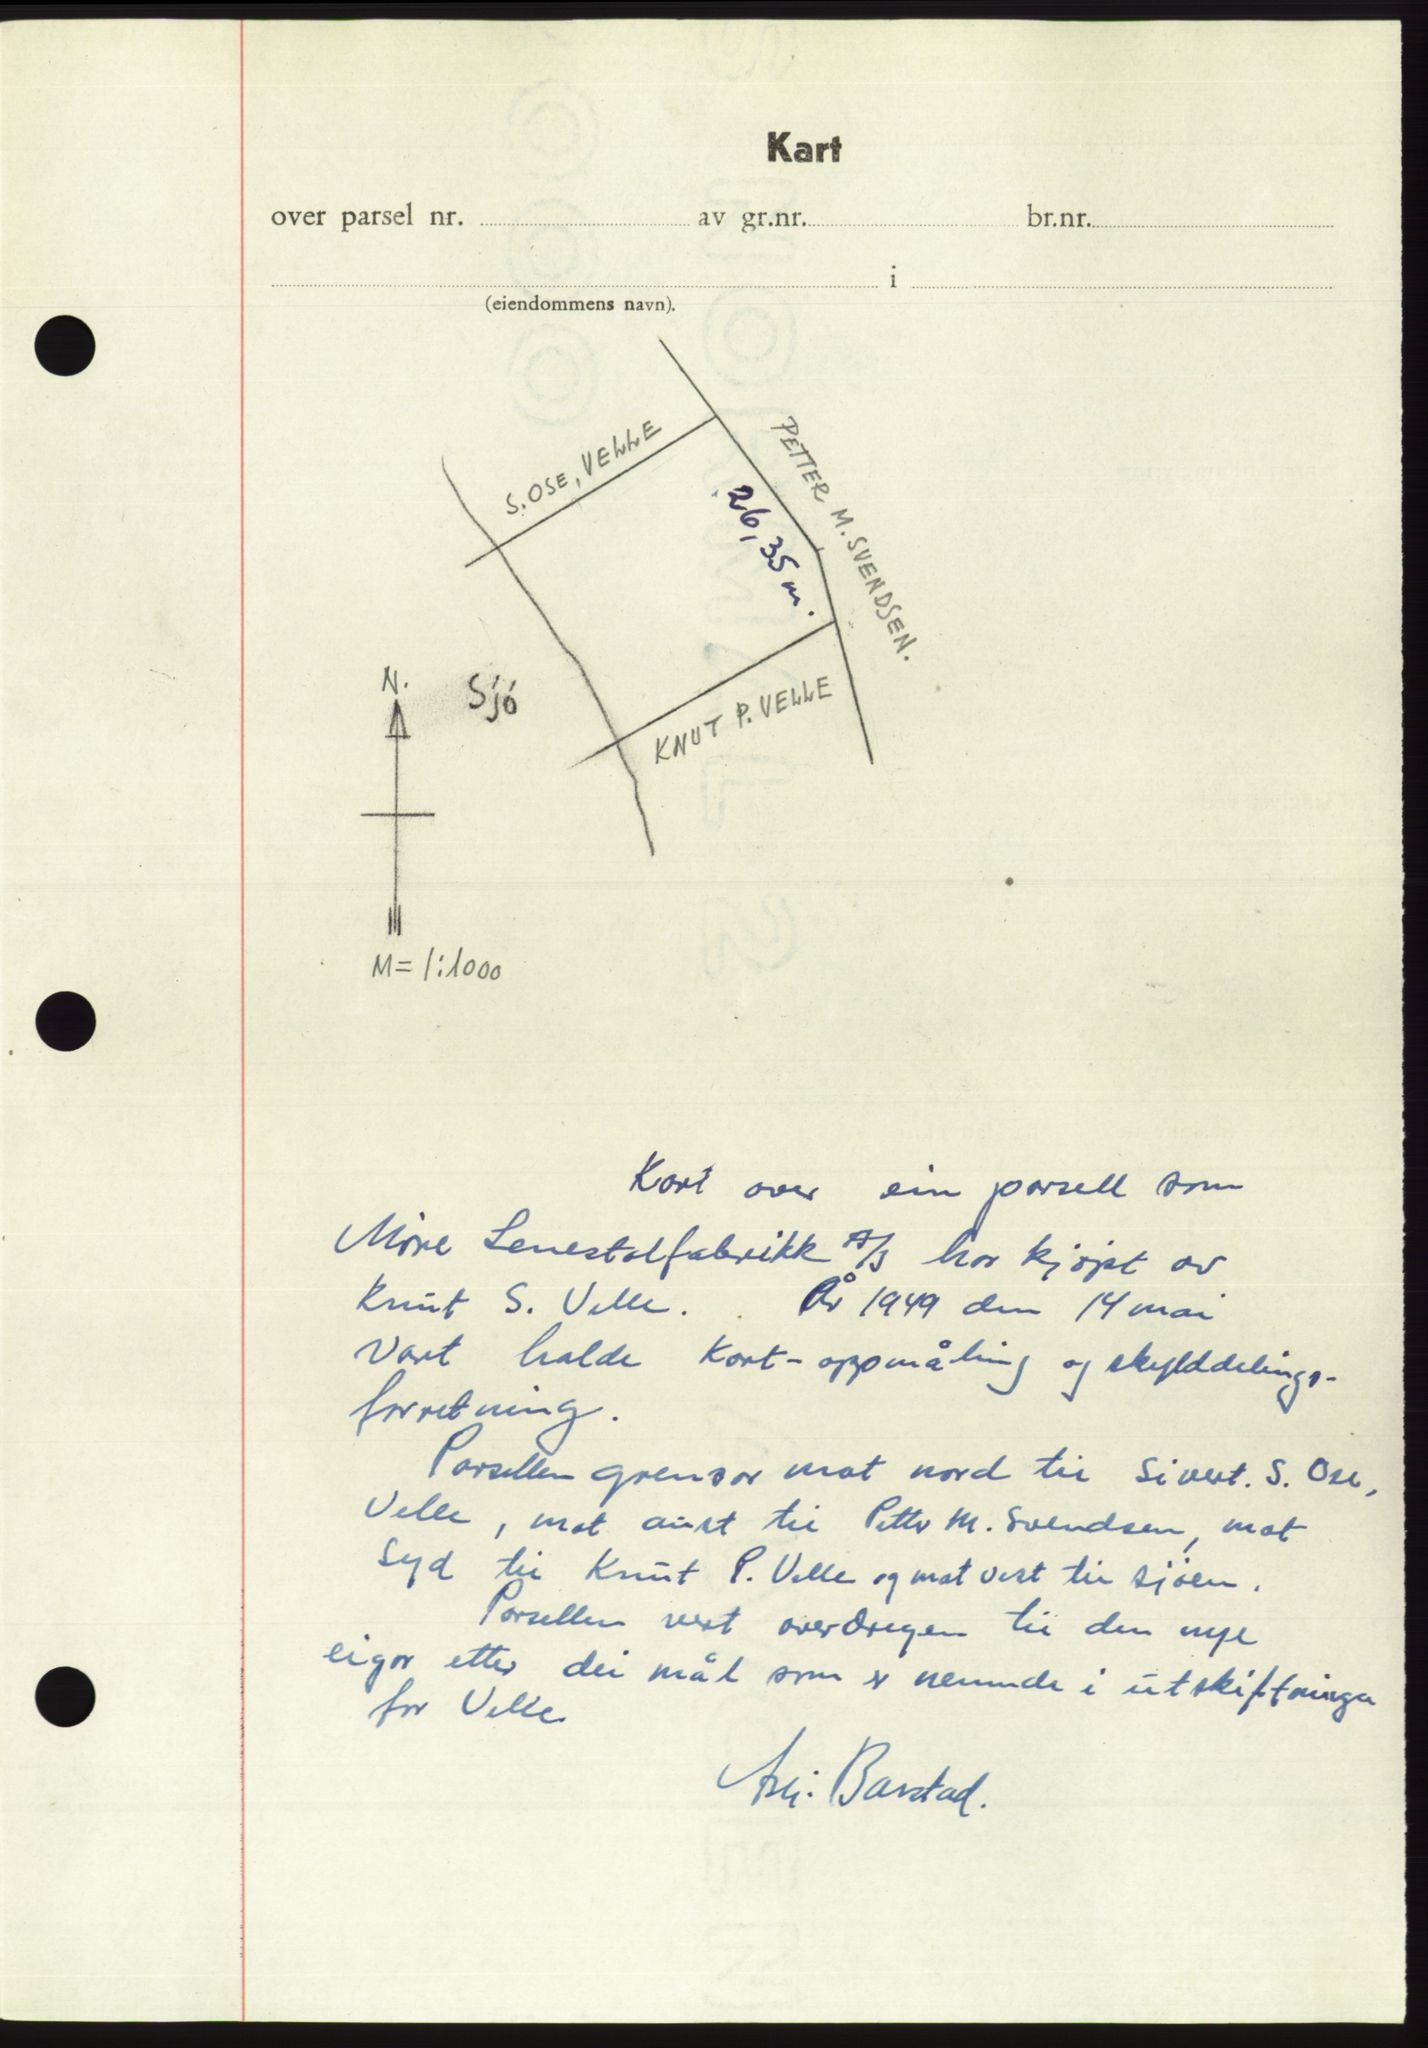 Kart
over parsel nr. av gr.nr. br.nr.
i
(eiendommens navn).
S. OSE, VELLE
PETTER M. SVENDSEN.
26,35 m.
N.
Sjö
KNUT P. VELLE
M = 1:1000
Kart over ein parsell som
Möre Lenestolfabrikk A/S har kjöpt av
Knut S. Velle. År 1949 den 14 mai
vart halde kart-oppmåling og skylddelings-
forretning.
Parsellen grensar mot nord til Sivert. S. Ose,
Velle, mot aust til Petter M. Svendsen, mot
syd til Knut P. Velle og mot vest til sjöen.
Parsellen vert overdregen til den nye
eigar etter dei mål som er nemnde i utskiftninga
for Velle
Barstad.